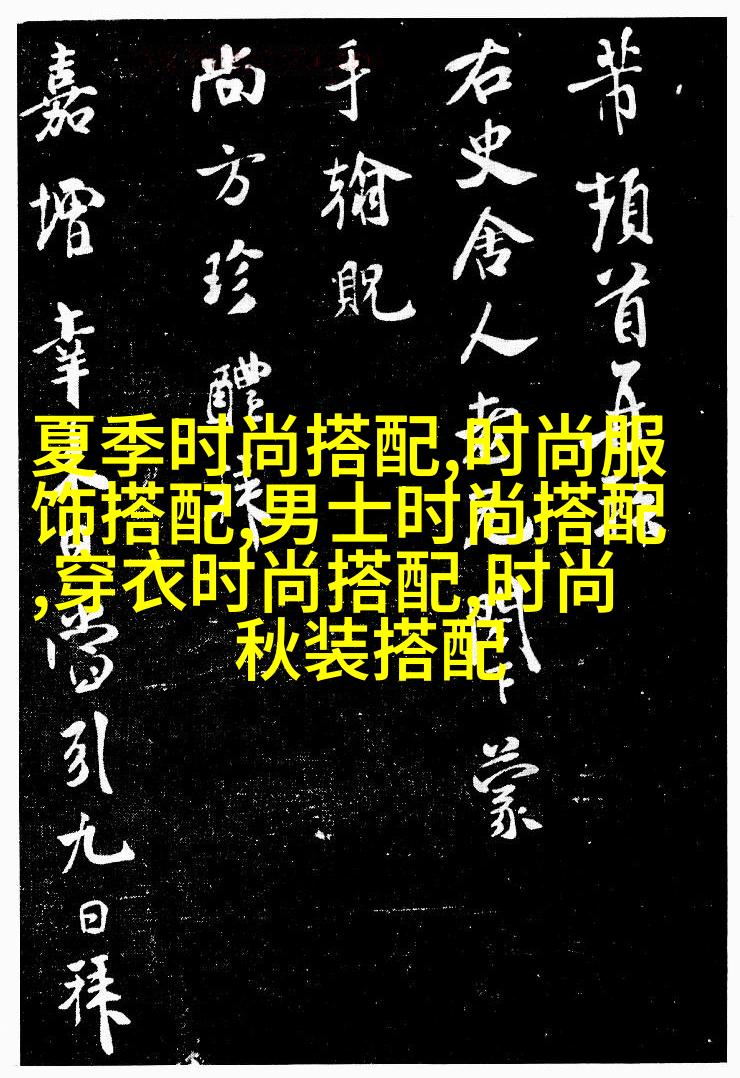 夏季时尚搭配,时尚服
饰搭配,男士时尚搭配
,穿衣时尚搭配,时尚
秋装搭配
芾頓首再
右史舍人老兄下蒙
手翰貺
尚方珍醴
嘉增幸日當引九日拜